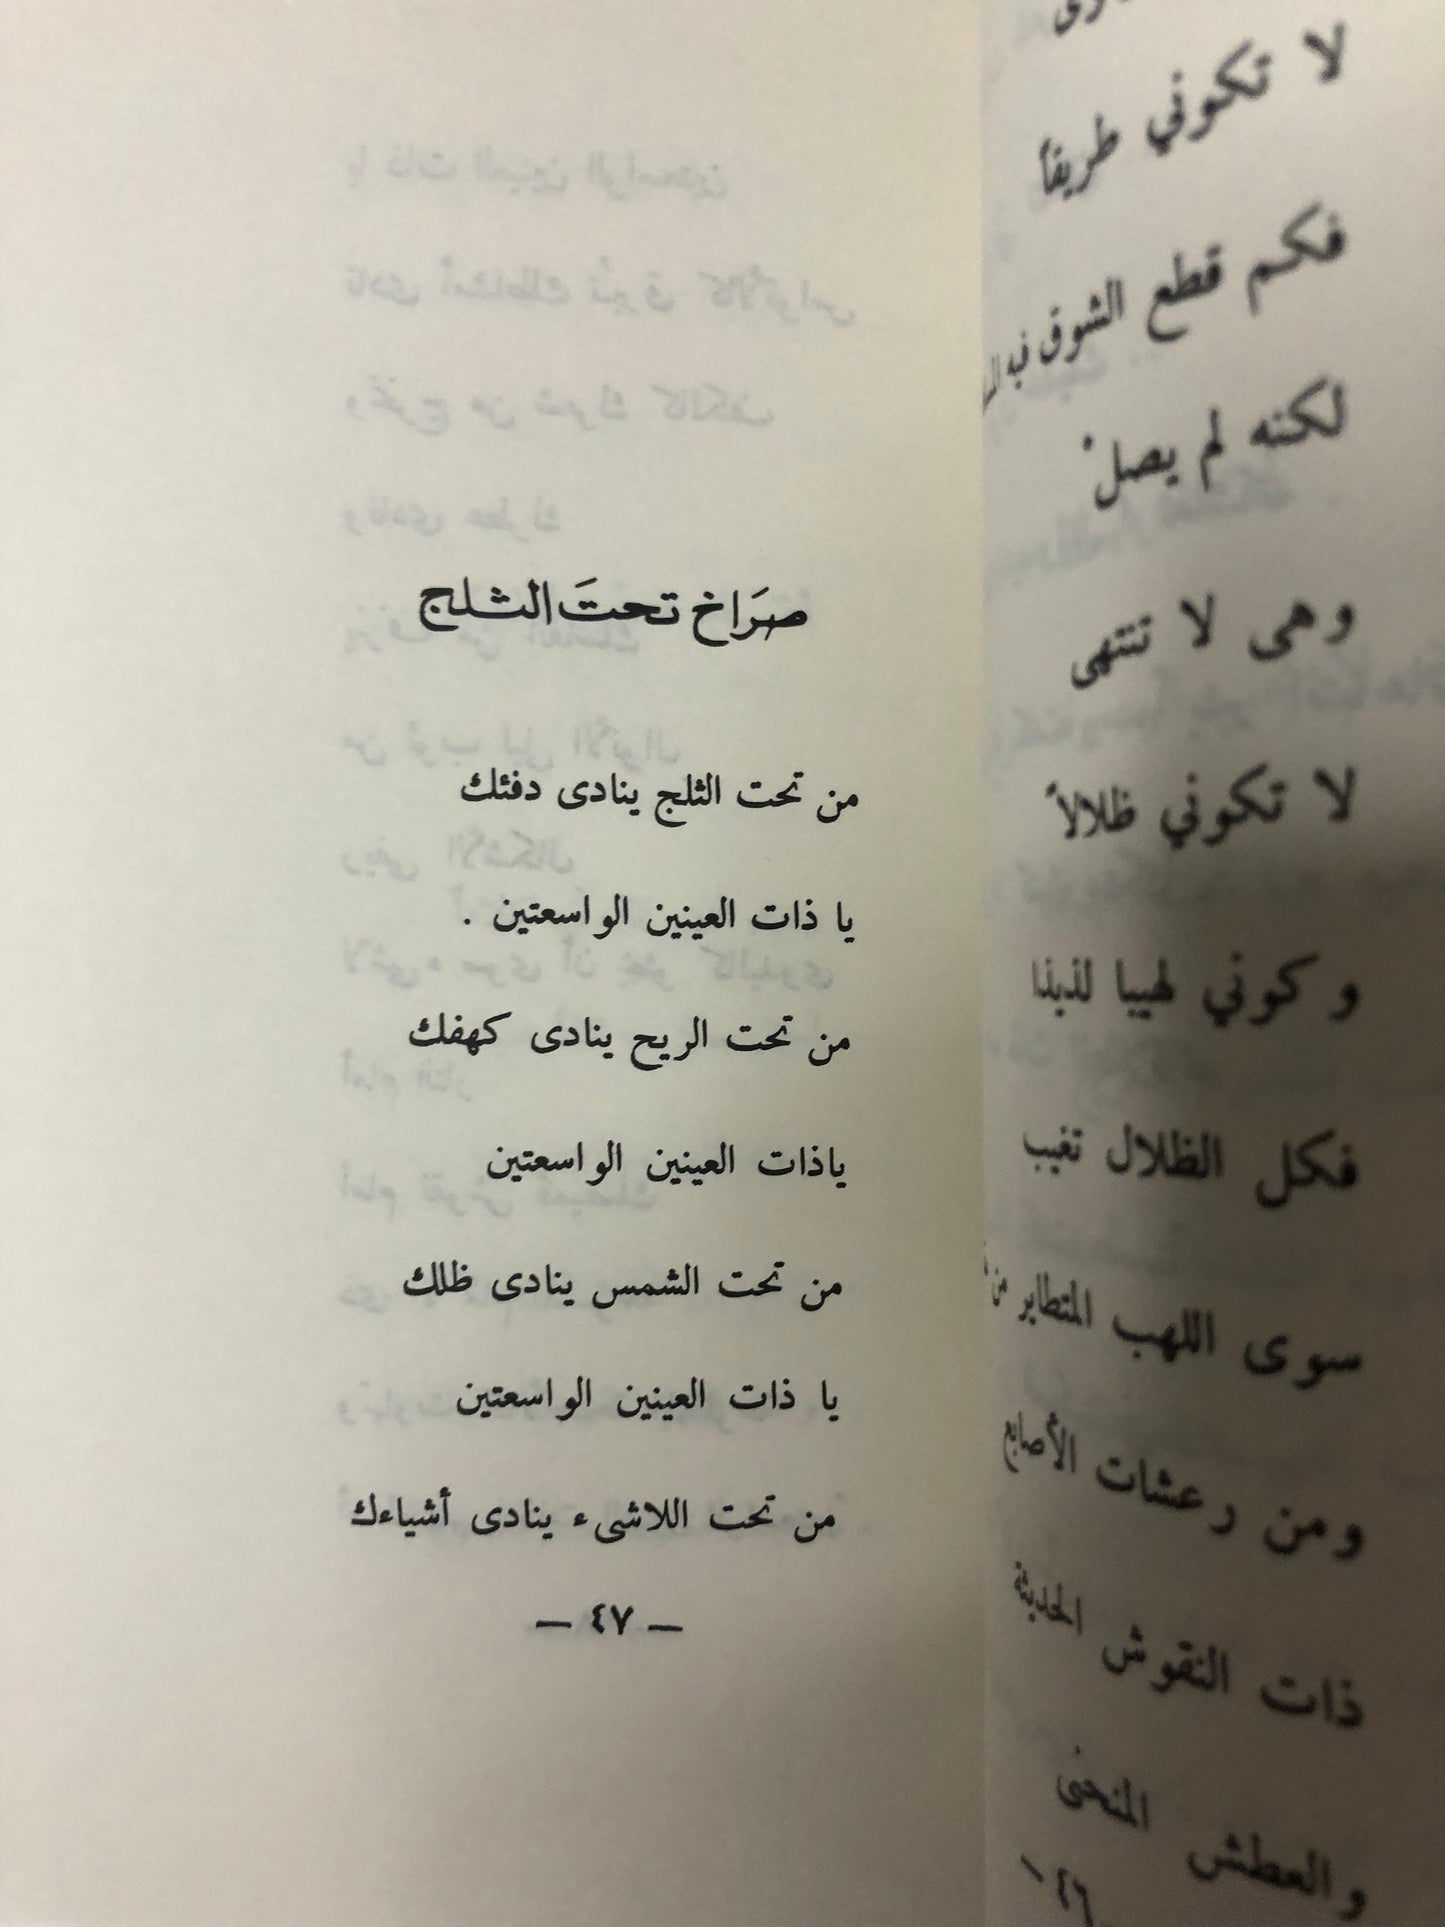 لا تكوني طريقاً
فكم قطع الشوق فيه
لكنه لم يصلْ
وهى لا تنتهى
لا تكوني ظلالاً
وكوني لهيبا لذيذا
فكل الظلال تغيب
سوى اللهب المتطاير من
ومن رعشات الأصابع
ذات النقوش الحديثة
والعطش المنحنى
٤٦ –
صرَاخ تحتَ الثلج
من تحت الثلج ينادى دفئك
يا ذات العينين الواسعتين .
من تحت الريح ينادى كهفك
ياذات العينين الواسعتين
من تحت الشمس ينادى ظلك
يا ذات العينين الواسعتين
من تحت اللاشىء ينادى أشياءك
– ٤٧ –